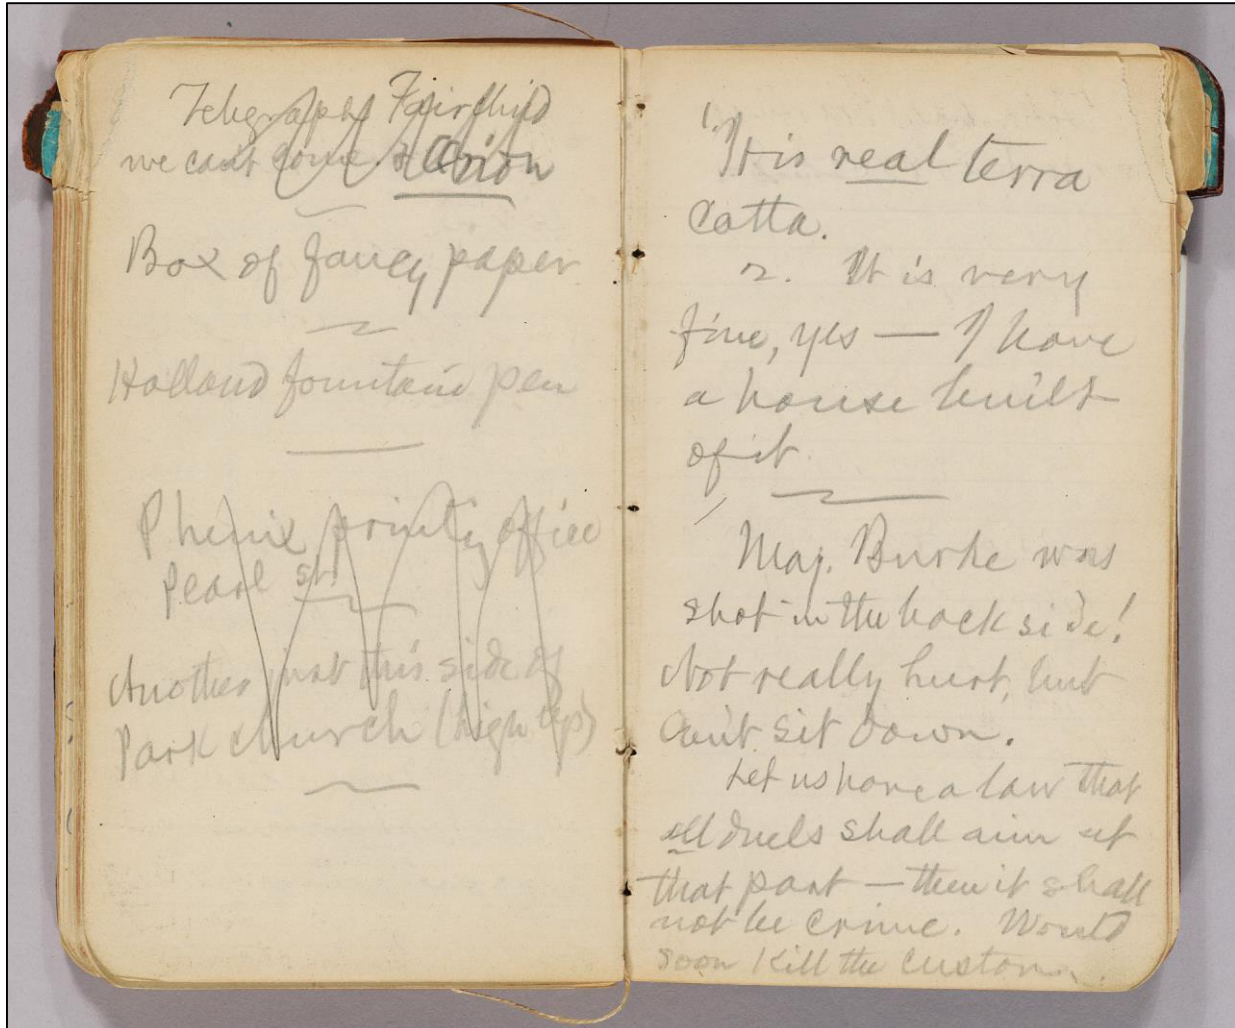 Telegraph Fairchild
we cant come to Orion
Box of fancy paper
Holland fountain pen
Phenix printg office
Pearl st.
Another just this side of
Park church (high up)
"It is real terra
cotta.
2. It is very
fine, yes — I have
a house built
of it.
Maj. Burke was
shot in the back side!
Not really hurt, but
can't sit down.
Let us have a law that
all duels shall aim at
that part — then it shall
not be crime. Would
soon kill the custom.